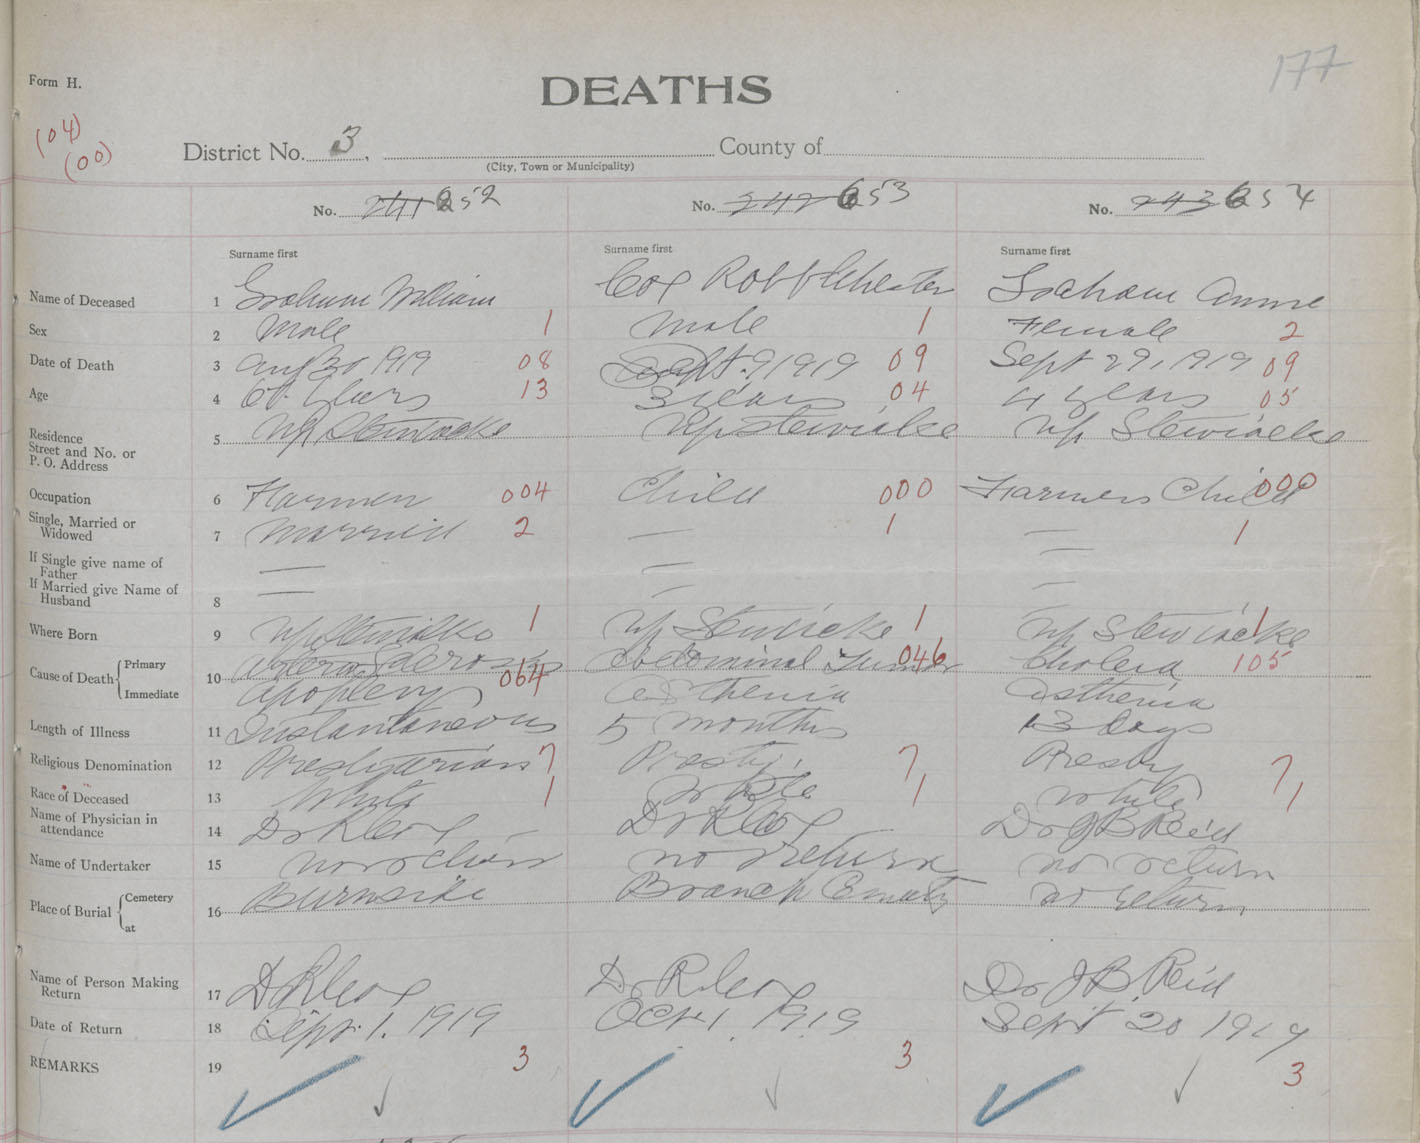 177
Form H.
DEATHS
(04)
(00)
District No. 3, County of
(City, Town or Municipality)
No. 241 652 No. 242 653 No. 243 654
Surname first Surname first Surname first
Name of Deceased 1 Graham William Cox Robt Chester Graham Annie
Sex 2 Male 1 Male 1 Female 2
Date of Death 3 Aug 30 1919 08 Sept. 9 1919 09 Sept 29, 1919 09
Age 4 years 13 3 years 04 4 years 05
Residence
Street and No. or
P. O. Address
5 Up Stewiacke Up Stewiacke Up Stewiacke
Occupation 6 Farmer 004 Child 000 Farmers Child 000
Single, Married or
Widowed
7 Married 2 — 1 — 1
If Single give name of
Father
— — —
If Married give Name of
Husband
8 — — —
Where Born 9 Up Stewiacke 1 Up Stewiacke 1 Up Stewiacke 1
Cause of Death { Primary 10 Arterio Sclerosis 064 Abdominal Tumor 046 Cholera 105
Immediate Apoplexy Asthenia Asthenia
Length of Illness 11 Instantaneous 5 months 13 days
Religious Denomination 12 Presbyterian 7 Presby. 7 Presby 7
Race of Deceased 13 White 1 White 1 White 1
Name of Physician in
attendance
14 Dr R Cox Dr R Cox Dr J B Reid
Name of Undertaker 15 no return no return no return
Place of Burial { Cemetery
at
16 Burnside Branch Cemetry no return
Name of Person Making
Return
17 Dr R Cox Dr R Cox Dr J B Reid
Date of Return 18 Sept. 1. 1919 Oct 1 1919 Sept 20 1919
REMARKS 19 3 3 3